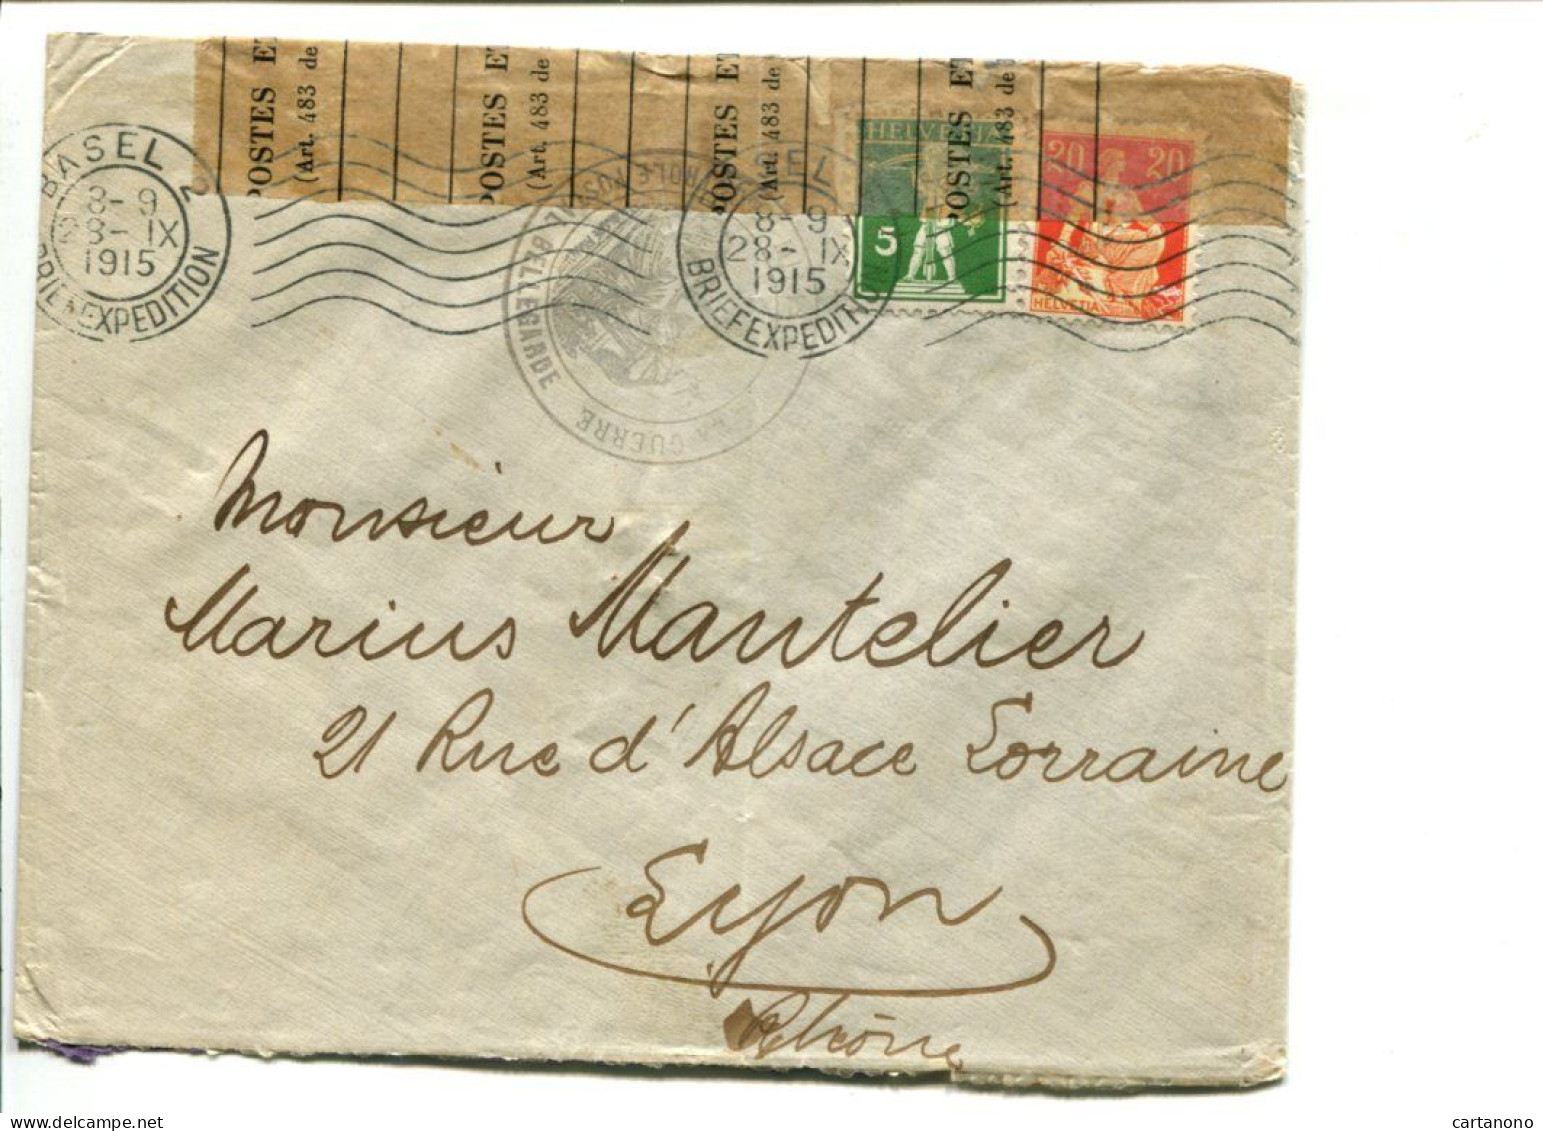 POSTES ET
(Art. 483 de
POSTES ET
(Art. 483 de
POSTES ET
(Art. 483 de
POSTES ET
(Art. 483 de
BASEL 2
8-9
8-IX
1915
BRIEFEXPEDITION
8-9
28-IX
1915
BRIEFEXPEDITION
CONTROLE POSTAL
BELLEGARDE
LA GUERRE
HELVETIA
5
20 20
HELVETIA
Monsieur
Marius Mantelier
21 Rue d'Alsace Lorraine
Lyon
Rhône
cartanono